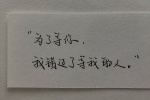 “为了等你，
我错过了等我的人。”